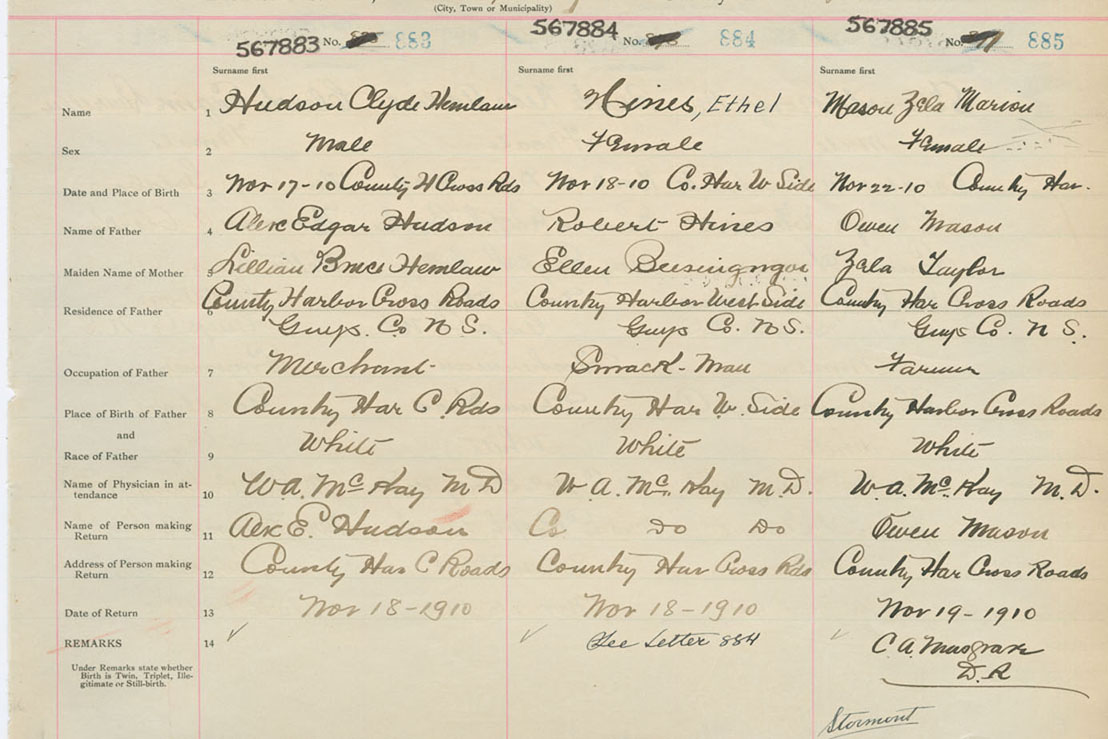 (City, Town or Municipality)
567883 No. 883 567884 No. 884 567885 No. 885
Surname first Surname first Surname first
Name 1 Hudson Clyde Hemlaw Hines, Ethel Mason Zela Marion
Sex 2 Male Female Female
Date and Place of Birth 3 Nov 17-10 County H Cross Rds Nov 18-10 Co. Har W Side Nov 22-10 Country Har.
Name of Father 4 Alex Edgar Hudson Robert Hines Owen Mason
Maiden Name of Mother 5 Lillian Bruce Hemlaw Ellen Zela Taylor
Residence of Father 6 County Harbor Cross Roads Country Harbor West Side Country Har Cross Roads
Guys. Co N S. Guys Co. N S. Guys Co. N S.
Occupation of Father 7 Merchant Smack-Man Farmer
Place of Birth of Father 8 Country Har C. Rds Country Har W. Side Country Harbor Cross Roads
and
Race of Father 9 White White White
Name of Physician in at-
tendance 10 W.A. McKay M D W. A. McKay M.D. W. A. McKay M.D.
Name of Person making
Return 11 Alex E. Hudson Co. Do Do Owen Mason
Address of Person making
Return 12 County Har C Roads Country Har Cross Rds Country Har Cross Roads
Date of Return 13 Nov 18-1910 Nov 18-1910 Nov 19-1910
REMARKS 14 See Letter 884 C. A. Musgrave
D. R
Under Remarks state whether
Birth is Twin, Triplet, Ille-
gitimate or Still-birth.
Stormont